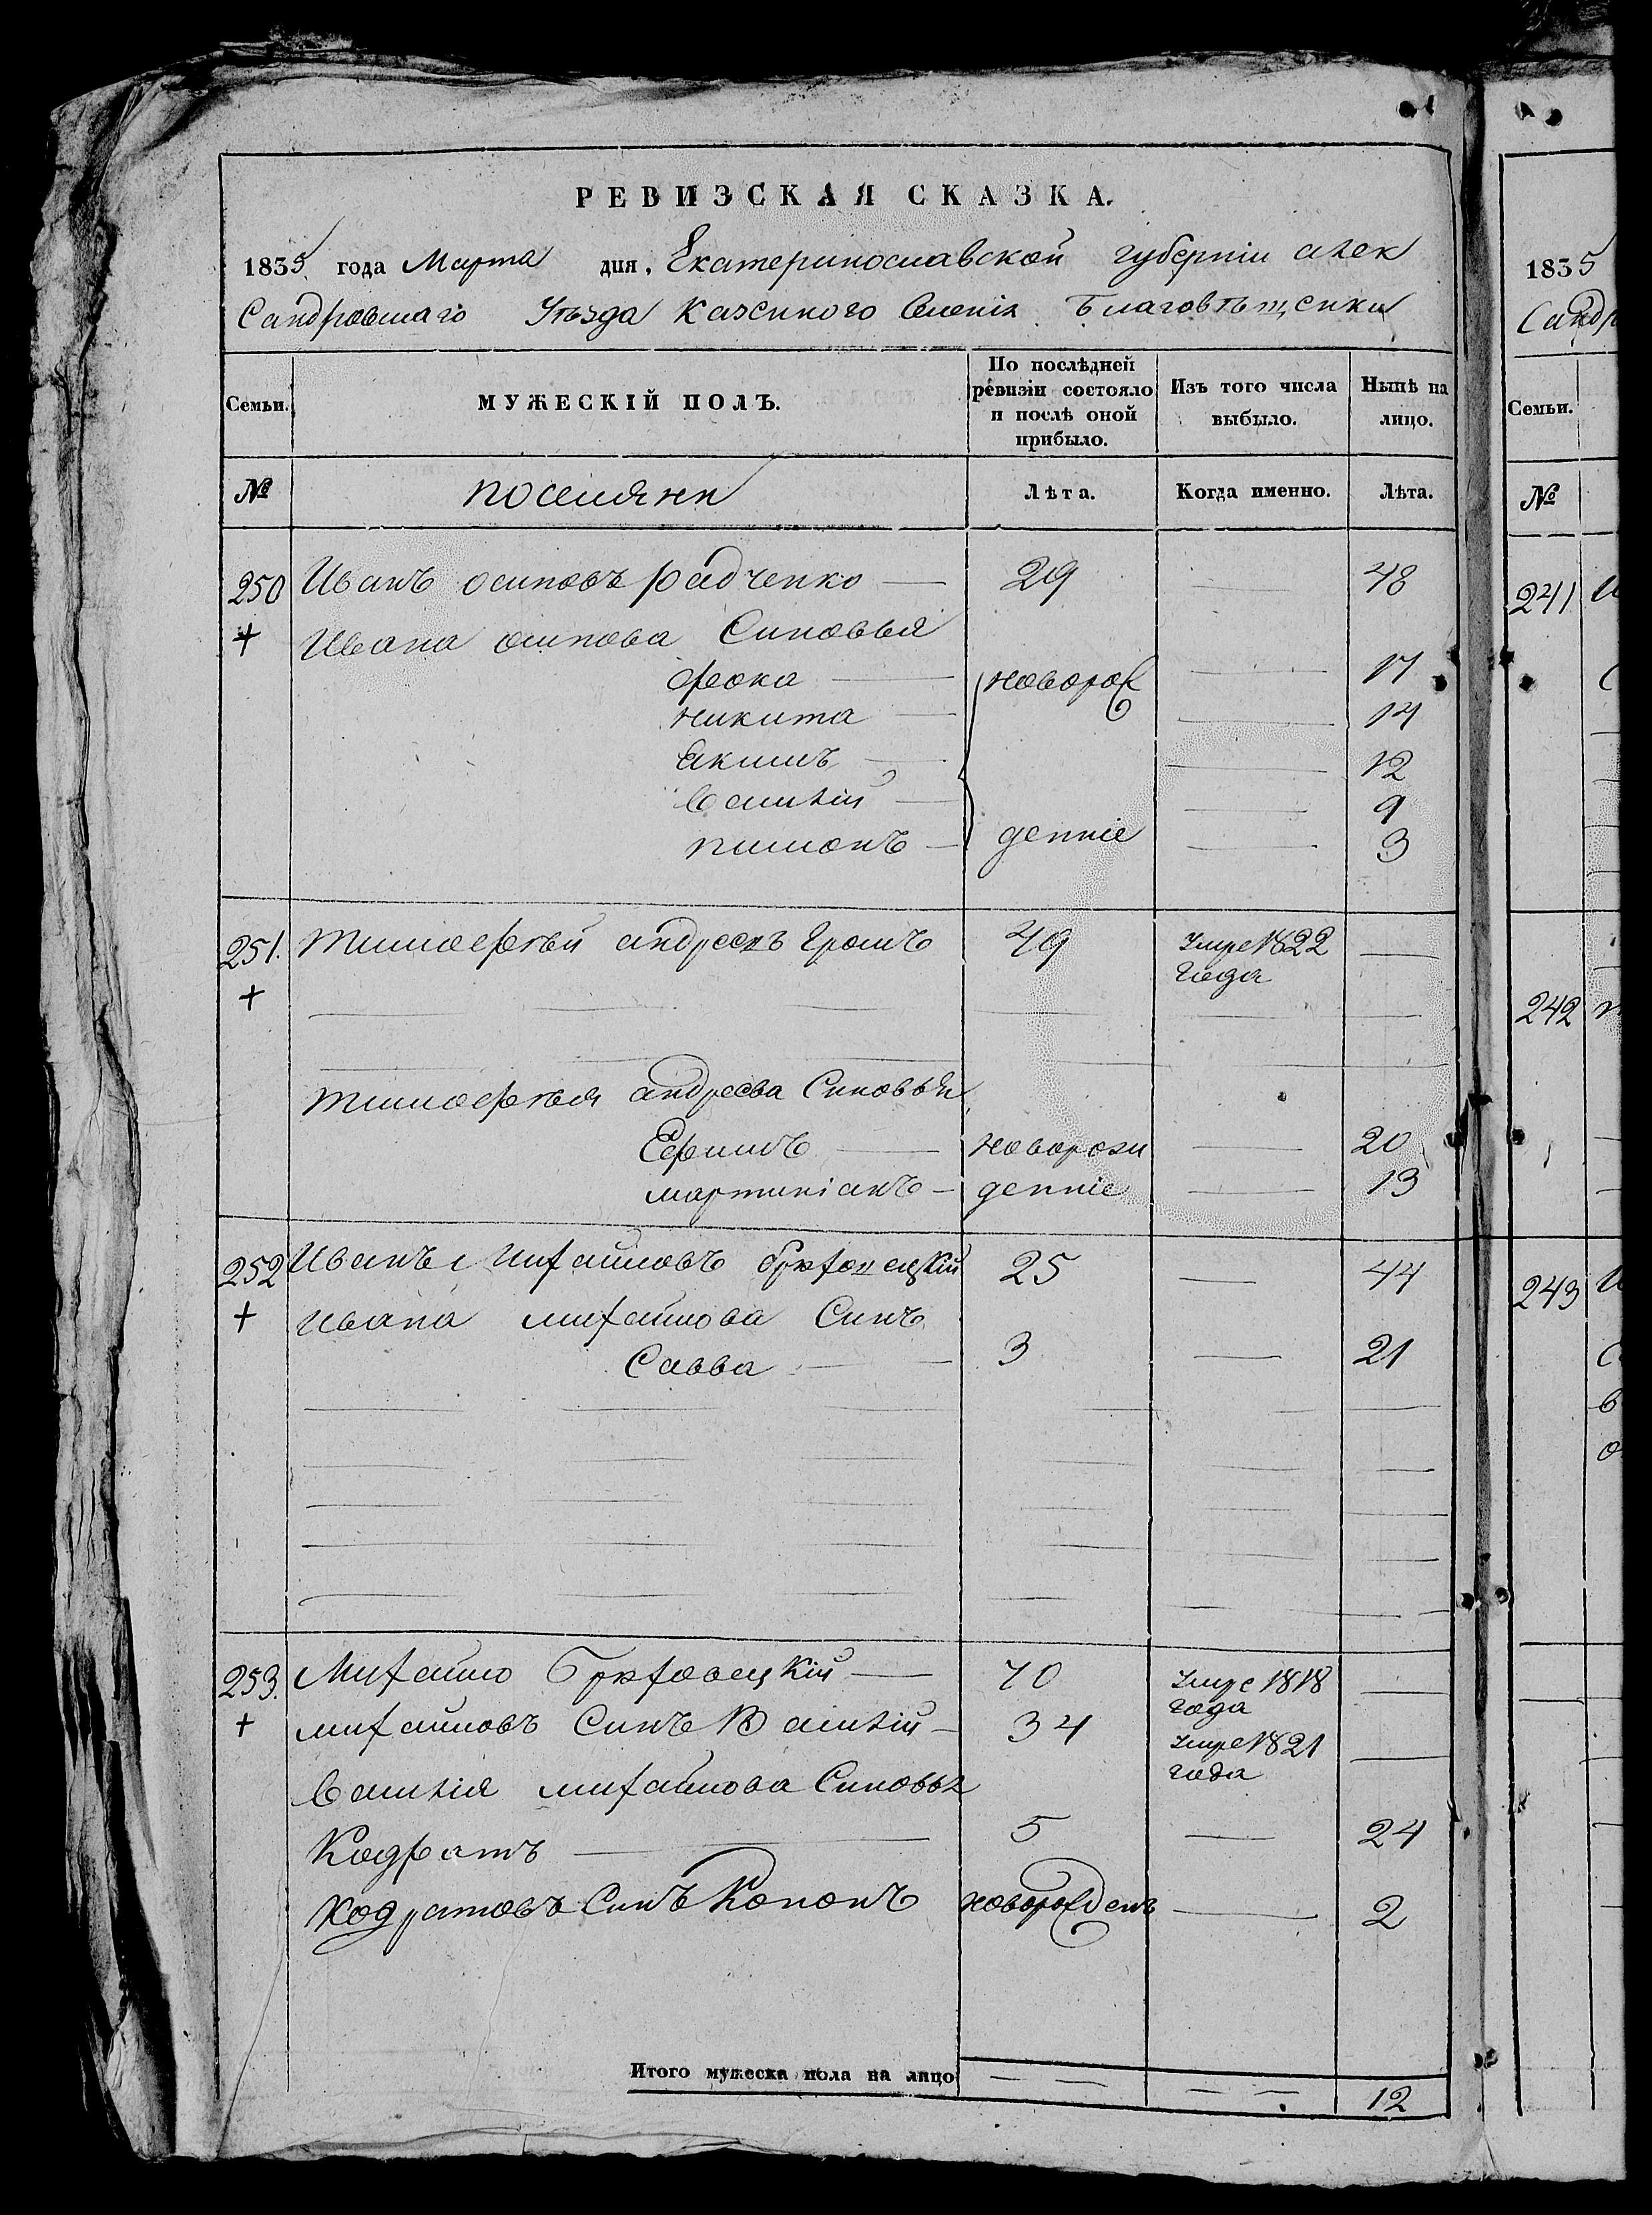 РЕВИЗСКАЯ СКАЗКА.
1835 года Марта дня. Екатеринославской губерніи алек
сандровскаго Уѣзда казенного Селенія Благовѣщенки
Семьи.
МУЖЕСКІЙ ПОЛЪ.
По послѣдней ревизіи состояло и послѣ оной прибыло.
Изъ того числа выбыло.
Нынѣ на лицо.
№ поселяни Лѣта. Когда именно. Лѣта.
250 Иванъ осиповъ радченко — 29 — 48
+ Ивана осипова Синовья
фока — новорож — 17
никита — — 14
Екимъ — — 12
Василій — — 9
пимонъ — денніе — 3
251. тимофѣй андреевъ Громъ 49 Умре 1822 —
+ года
тимофѣя андреева Синовья
Ефимъ — новорож — 20
мартиніанъ — денніе — 13
252 Иванъ Михайловъ 25 — 44
+ Ивана михайлова Синъ
Савва — 3 — 21
253. Михайло — 70 Умре 1818 —
года
+ михайловъ Синъ Василій — 34 Умре 1821 —
года
Василія михайлова Синовья
Кодратъ — 5 — 24
Кодратовъ Синъ Кононъ новорожденъ — 2
Итого мужеска пола на лицо — — — — 12
1835
Сандр
Семьи.
№
241
242
243